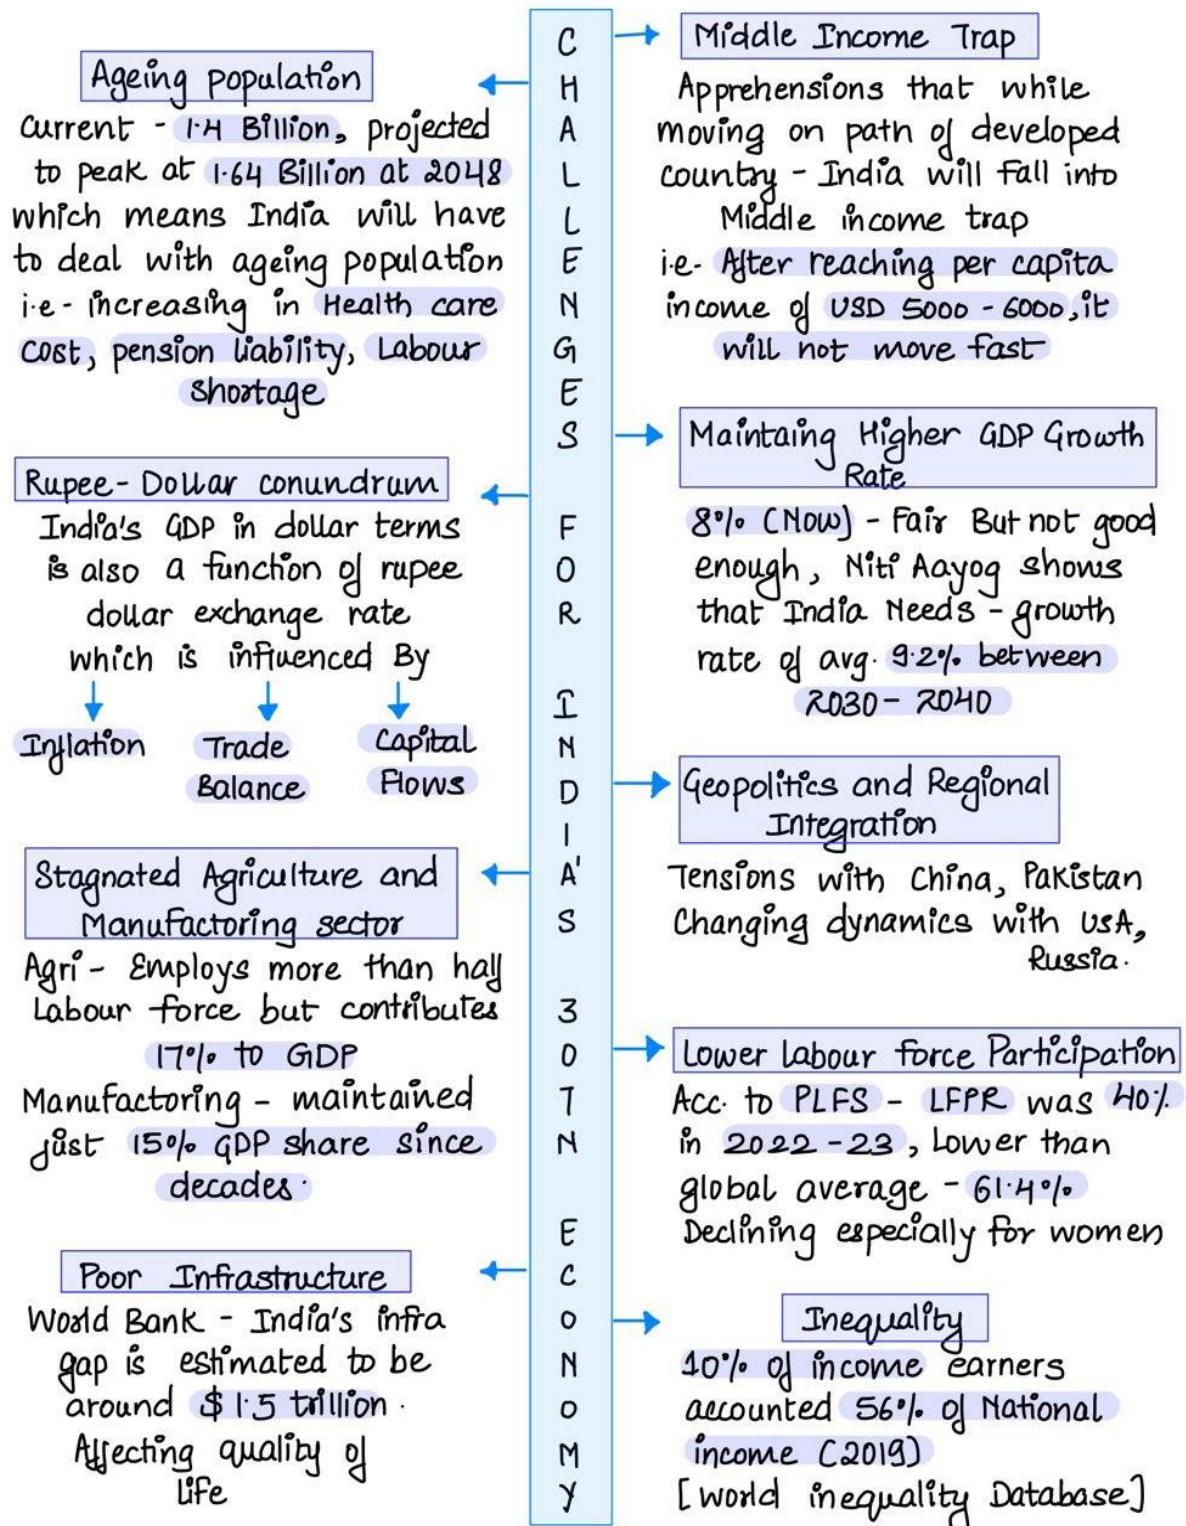 CHALLENGES FOR INDIA'S 30TN ECONOMY
Ageing population
Current - 1.4 Billion, projected
to peak at 1.64 Billion at 2048
which means India will have
to deal with ageing population
i.e - increasing in Health care
Cost, pension liability, Labour
Shortage
Rupee - Dollar conundrum
India's GDP in dollar terms
is also a function of rupee
dollar exchange rate
which is influenced By
Inflation
Trade
Balance
Capital
Flows
Stagnated Agriculture and
Manufactoring sector
Agri - Employs more than half
Labour force but contributes
17% to GDP
Manufactoring - maintained
just 15% GDP share since
decades.
Poor Infrastructure
World Bank - India's infra
gap is estimated to be
around $ 1.5 trillion.
Affecting quality of
life
Middle Income Trap
Apprehensions that while
moving on path of developed
country - India will fall into
Middle income trap
i.e- After reaching per capita
income of USD 5000 - 6000, it
will not move fast
Maintaing Higher GDP Growth
Rate
8% (Now) - Fair But not good
enough, Niti Aayog shows
that India Needs - growth
rate of avg. 9.2% between
2030 - 2040
Geopolitics and Regional
Integration
Tensions with China, Pakistan
Changing dynamics with USA,
Russia.
Lower labour force Participation
Acc. to PLFS - LFPR was 40%
in 2022-23, Lower than
global average - 61.4%
Declining especially for women
Inequality
10% of income earners
accounted 56% of National
income (2019)
[world inequality Database]